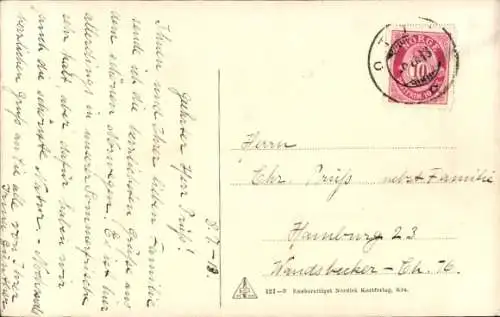 8.7.-13.
Geehrter Herr Prüß!
Ihnen und Ihrer lieben Familie
sende ich die herzlichsten Grüße aus
dem schönen Norwegen. Es ist hier
allerdings in unserer Sommerfrische
sehr kalt, aber dafür haben wir
auch die schönste Natur. -
herzlichen Gruß an Sie alle von Ihrer
Günther
NORGE
10
Herrn
Chr. Prüß nebst Familie
Hamburg 23
Wandsbecker-Ch. 76.
121-9 Eneberettiget Nordisk Kunstforlag, Kra.